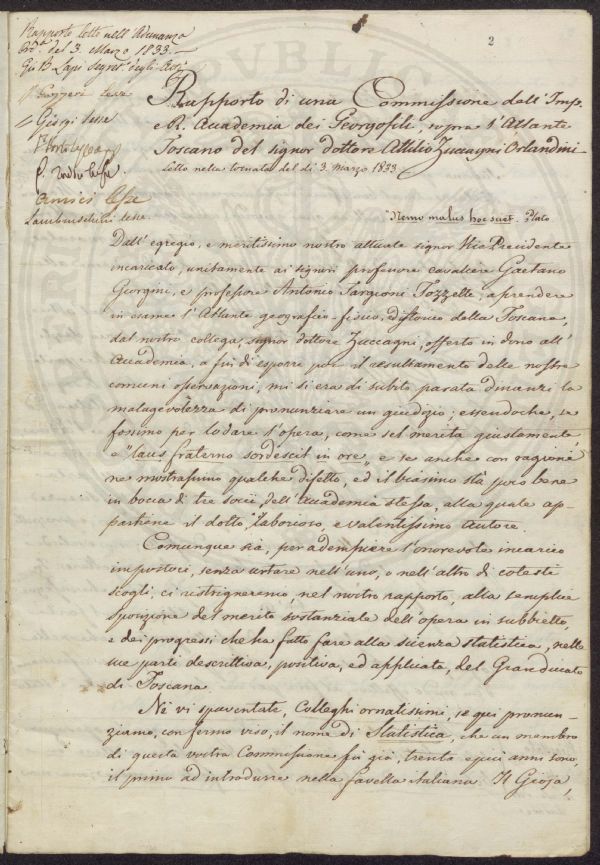 Rapporto letto nell'Adunanza
del 3. Marzo 1833.
Gio B. Lapi Segret. degli Atti
2
Gazzeri lesse
Giorgi lesse
lesse
Amici lesse
Lambruschini lesse
Rapporto di una Commissione dell'Imp.
e R. Accademia dei Georgofili, sopra l'Atlante
Toscano del signor dottore Attilio Zuccagni Orlandini
Letto nella tornata del dì 3. marzo 1833
Nemo malus hoc suet. Plato
Dall'egregio, e meritissimo nostro attuale signor Vice Presidente
incaricato, unitamente ai signori professore cavaliere Gaetano
Giorgini, e professore Antonio Targioni Tozzetti, a prendere
in esame l'Atlante geografico-fisico, ed istorico della Toscana,
dal nostro collega, signor dottore Zuccagni, offerto in dono all'
Accademia, a fin di esporre poi il resultamento delle nostre
comuni osservazioni, mi si era di subito parata dinanzi la
malagevolezza di pronunziare un giudizio; essendochè, se
fossimo per lodare l'opera, come sel merita giustamente,
e "laus fraterno sordescit in ore" e se anche con ragione
ne mostrassimo qualche difetto, ed il biasimo stà poco bene
in bocca di tre socii dell'Accademia stessa, alla quale ap-
partiene il dotto, laborioso, e valentissimo Autore.
Comunque sia, per adempiere l'onorevole incarico
impostoci, senza urtare nell'uno, o nell'altro di cotesti
scogli, ci ristrigneremo, nel nostro rapporto, alla semplice
sposizione del merito sostanziale dell'opera in subbietto,
e dei progressi che ha fatto fare alla scienza statistica, nelle
sue parti descrittiva, positiva, ed applicata, del Granducato
di Toscana.
Nè vi spaventate, Colleghi ornatissimi, se qui pronun-
ziamo, con fermo viso, il nome di Statistica, che un membro
di questa vostra Commissione fu già, trenta e più anni sono,
il primo ad introdurre nella favella italiana. Il Gioja,